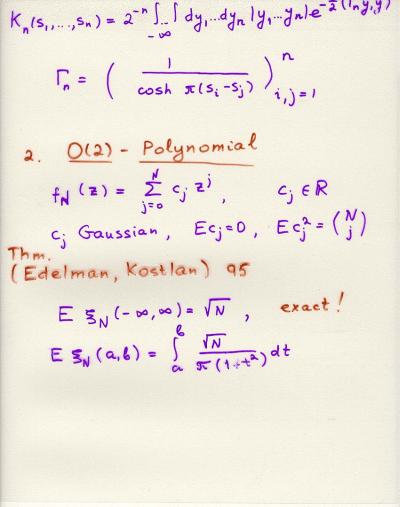 Kn(s1,...,sn) = 2^-n ∫..∫ -∞ dy1...dyn |y1...yn| e^-1/2(Γn y, y)
Γn = ( 1 / cosh π(si-sj) )^n i,j=1
2. O(2) - Polynomial
fN(z) = Σ j=0 N cj z^j, cj ∈ R
cj Gaussian, Ecj=0, Ecj^2 = (N j)
Thm.
(Edelman, Kostlan) 95
E ξN(-∞,∞) = √N, exact!
E ξN(a,b) = ∫ a b √N / π(1+t^2) dt